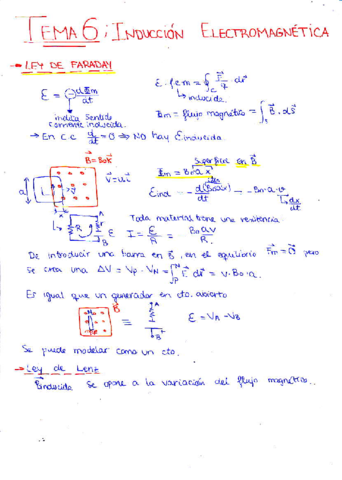 TEMA 6: INDUCCIÓN ELECTROMAGNÉTICA
→ LEY DE FARADAY
ε = -dΦm/dt
ε. fem = ∮c F⃗/q · dr⃗
↳ inducida.
indica sentido corriente inducida.
Φm = flujo magnético = ∫s B⃗ · ds⃗
→ En C.C d/dt = 0 ⇒ No hay ε inducida.
B⃗ = B₀k⃗
v⃗ = v·i⃗
Superficie en B⃗
Φm = B₀·a·x
a L v⃗
x
εind = - d(B₀ax)/dt = - B₀·a·v
↳ dx/dt
R ε A B
Todo material tiene una resistencia
I = ε/R = B₀av/R
De introducir una barra en B⃗, en el equilibrio F⃗m = 0⃗ pero
se crea una ΔV = Vp - VN = ∫ E⃗ dr⃗ = v·B₀·a.
Es igual que un generador en cto. abierto
B⃗ = ε A B
ε = VA - VB
Se puede modelar como un cto.
→ Ley de Lenz
B⃗inducida se opone a la variación del flujo magnético.